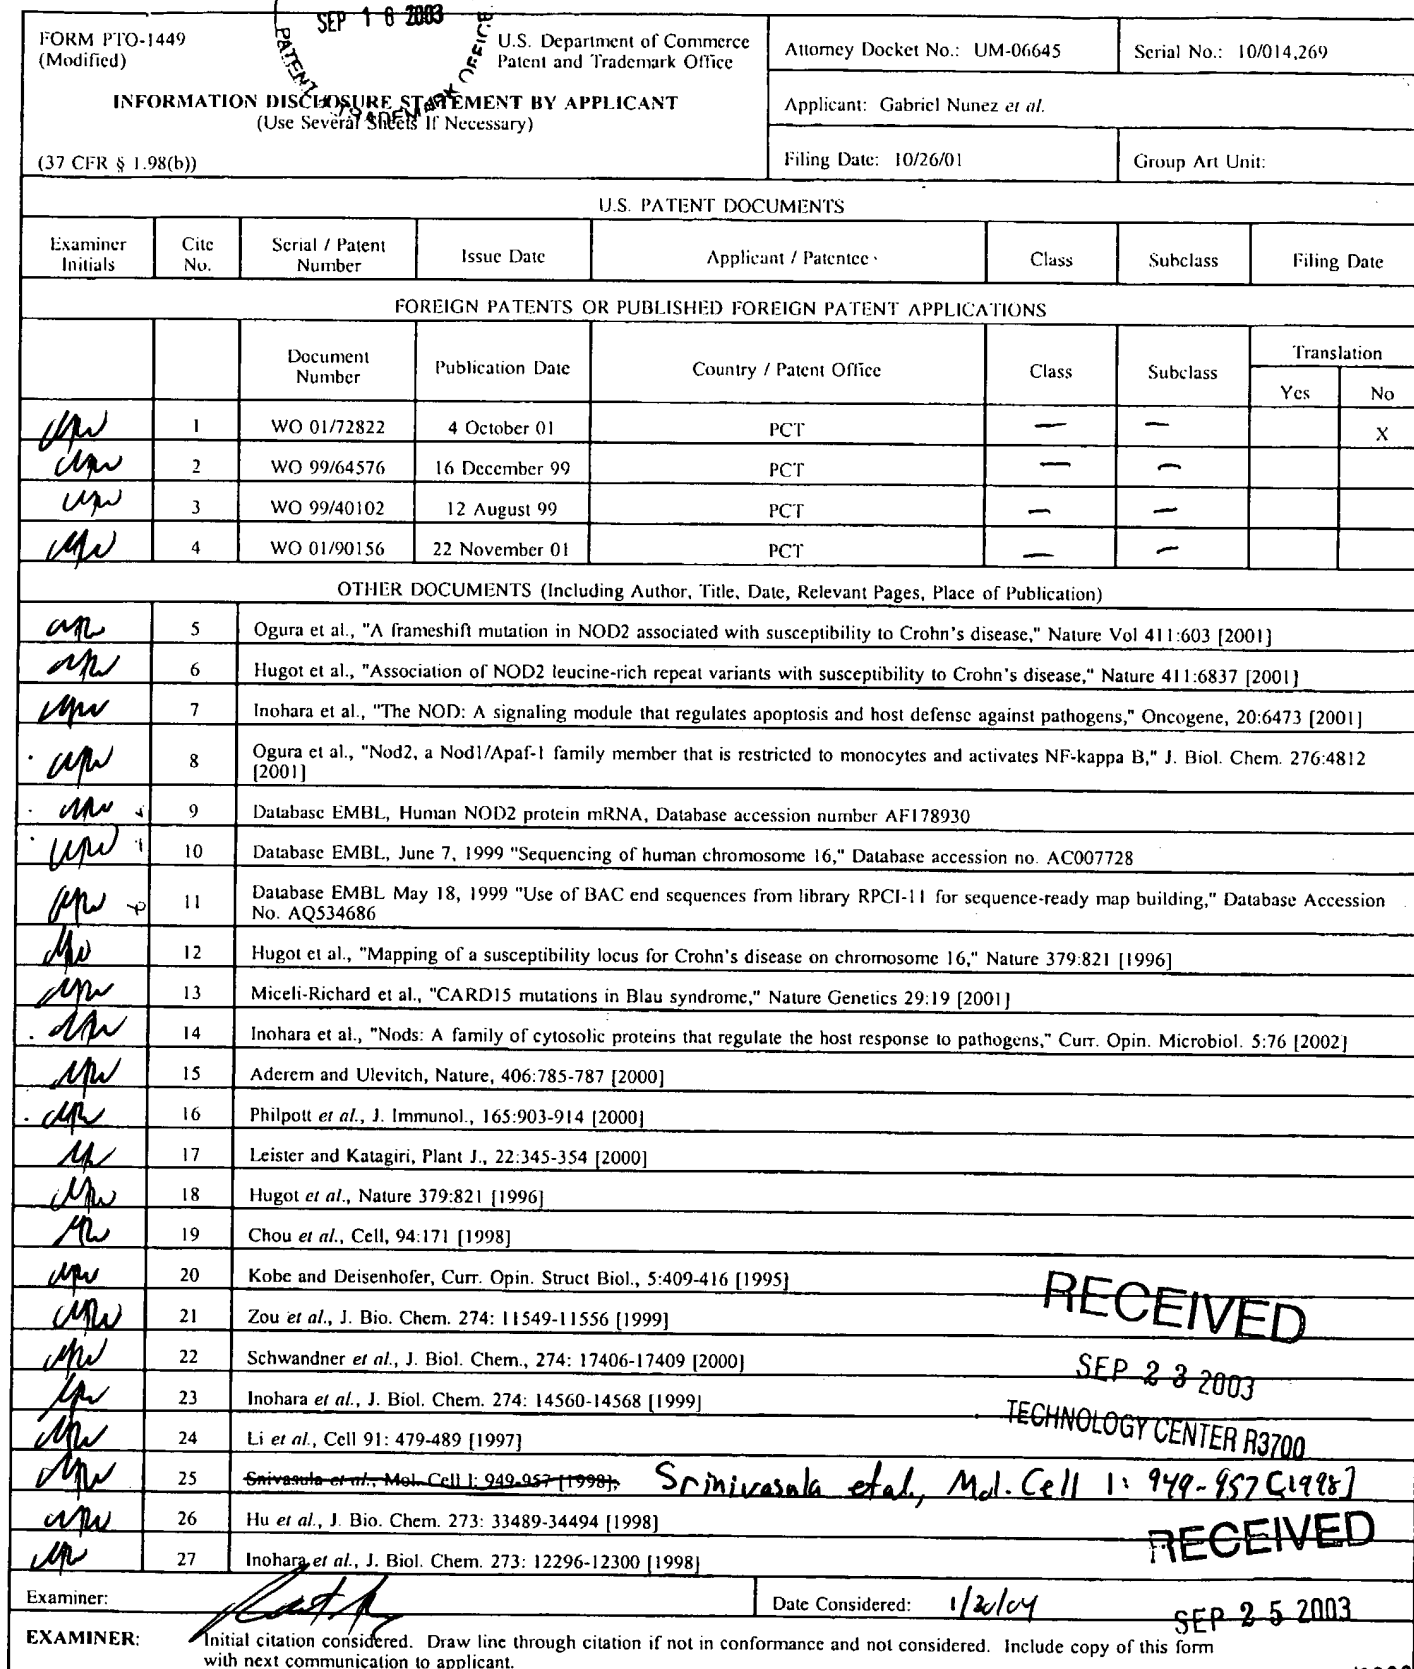 SEP 18 2003
PATENT & TRADEMARK OFFICE
FORM PTO-1449
(Modified)
U.S. Department of Commerce
Patent and Trademark Office
INFORMATION DISCLOSURE STATEMENT BY APPLICANT
(Use Several Sheets If Necessary)
(37 CFR § 1.98(b))
Attorney Docket No.: UM-06645
Serial No.: 10/014,269
Applicant: Gabriel Nunez et al.
Filing Date: 10/26/01
Group Art Unit:
U.S. PATENT DOCUMENTS
Examiner Initials Cite No. Serial / Patent Number Issue Date Applicant / Patentee Class Subclass Filing Date
FOREIGN PATENTS OR PUBLISHED FOREIGN PATENT APPLICATIONS
Document Number Publication Date Country / Patent Office Class Subclass Translation
Yes No
1 WO 01/72822 4 October 01 PCT — — X
2 WO 99/64576 16 December 99 PCT — —
3 WO 99/40102 12 August 99 PCT — —
4 WO 01/90156 22 November 01 PCT — —
OTHER DOCUMENTS (Including Author, Title, Date, Relevant Pages, Place of Publication)
5 Ogura et al., "A frameshift mutation in NOD2 associated with susceptibility to Crohn's disease," Nature Vol 411:603 [2001]
6 Hugot et al., "Association of NOD2 leucine-rich repeat variants with susceptibility to Crohn's disease," Nature 411:6837 [2001]
7 Inohara et al., "The NOD: A signaling module that regulates apoptosis and host defense against pathogens," Oncogene, 20:6473 [2001]
8 Ogura et al., "Nod2, a Nod1/Apaf-1 family member that is restricted to monocytes and activates NF-kappa B," J. Biol. Chem. 276:4812
[2001]
9 Database EMBL, Human NOD2 protein mRNA, Database accession number AF178930
10 Database EMBL, June 7, 1999 "Sequencing of human chromosome 16," Database accession no. AC007728
11 Database EMBL May 18, 1999 "Use of BAC end sequences from library RPCI-11 for sequence-ready map building," Database Accession
No. AQ534686
12 Hugot et al., "Mapping of a susceptibility locus for Crohn's disease on chromosome 16," Nature 379:821 [1996]
13 Miceli-Richard et al., "CARD15 mutations in Blau syndrome," Nature Genetics 29:19 [2001]
14 Inohara et al., "Nods: A family of cytosolic proteins that regulate the host response to pathogens," Curr. Opin. Microbiol. 5:76 [2002]
15 Aderem and Ulevitch, Nature, 406:785-787 [2000]
16 Philpott et al., J. Immunol., 165:903-914 [2000]
17 Leister and Katagiri, Plant J., 22:345-354 [2000]
18 Hugot et al., Nature 379:821 [1996]
19 Chou et al., Cell, 94:171 [1998]
20 Kobe and Deisenhofer, Curr. Opin. Struct Biol., 5:409-416 [1995]
21 Zou et al., J. Bio. Chem. 274: 11549-11556 [1999]
22 Schwandner et al., J. Biol. Chem., 274: 17406-17409 [2000]
23 Inohara et al., J. Biol. Chem. 274: 14560-14568 [1999]
24 Li et al., Cell 91: 479-489 [1997]
25 Snivasula et al., Mol. Cell 1: 949-957 [1998]; Srinivasula et al., Mol. Cell 1: 949-957 [1998]
26 Hu et al., J. Bio. Chem. 273: 33489-34494 [1998]
27 Inohara et al., J. Biol. Chem. 273: 12296-12300 [1998]
RECEIVED
SEP 23 2003
TECHNOLOGY CENTER R3700
RECEIVED
SEP 25 2003
Examiner:
Date Considered: 1/20/04
EXAMINER: Initial citation considered. Draw line through citation if not in conformance and not considered. Include copy of this form
with next communication to applicant.